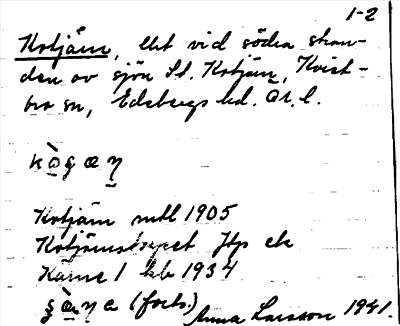 1-2
Kotjärn, llt vid södra stran-
den av sjön St. Kotjärn, Kvist-
bro sn, Edsbergs hd. Ör. l.
Kotjärn mtl 1905
Kotjärnstorpet Jtp ek
Kärne 1 kb 1934
(forts.) Anna Larsson 1941.